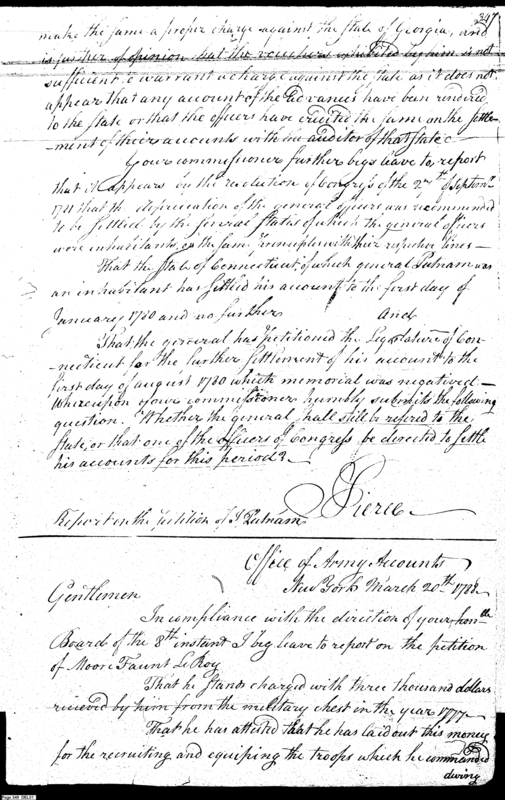 347
make the same a proper charge against the state of Georgia, and
is further of opinion that the vouchers exhibited by him is not
sufficient to warrant a charge against the state as it does not
appear that any account of the advances have been rendered
to the state or that the officers have credited the same on the settle-
-ment of their accounts with the auditor of that state
Your commissioner further begs leave to report
that it appears by the resolution of Congress of the 2nd of Septemr
1781 that the depreciation of the general officers was recommended
to be settled by the several states of which the general officers
were inhabitants, on the same principles with their respective lines—
That the state of Connecticut, of which general Putnam was
an inhabitant has settled his account to the first day of
January 1780 and no further And
That the general has petitioned the Legislature of Con-
-necticut for the further settlement of his account to the
first day of august 1780 which memorial was negatived—
Whereupon your commissioner humbly submits the following
question. Whether the general shall still be refered to the
state, or that one of the officers of Congress be directed to settle
his accounts for this period?—
Pierce
Report on the petition of I Putnam
Office of Army Accounts
New York March 20th 1788
Gentlemen
In compliance with the direction of your honble
Board of the 8th instant I beg leave to report on the petition
of Moore Faunt LeRoy
That he stands charged with three thousand dollars
recieved by him from the military chest in the year 1777—
That he has attested that he has laid out this money
for the recruiting and equiping the troops which he commanded
during